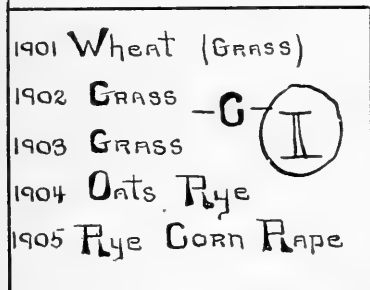 1901 Wheat (Grass)
1902 Grass
-C- I
1903 Grass
1904 Oats Rye
1905 Rye Corn Rape